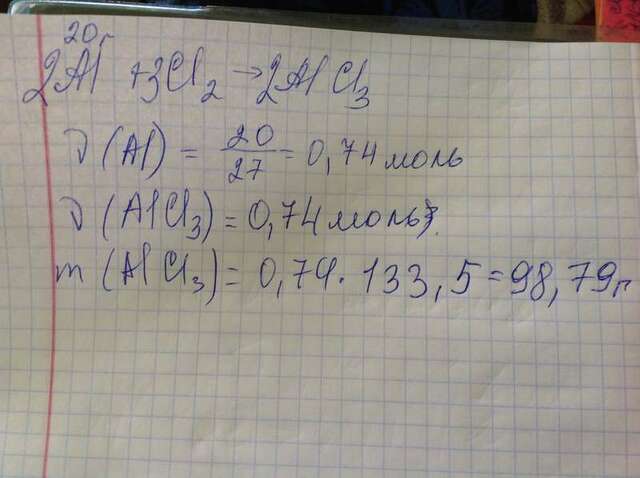 20г
2Al + 3Cl₂ → 2AlCl₃
ν (Al) = 20/27 = 0,74 моль
ν (AlCl₃) = 0,74 моль
m (AlCl₃) = 0,74 · 133,5 = 98,79г